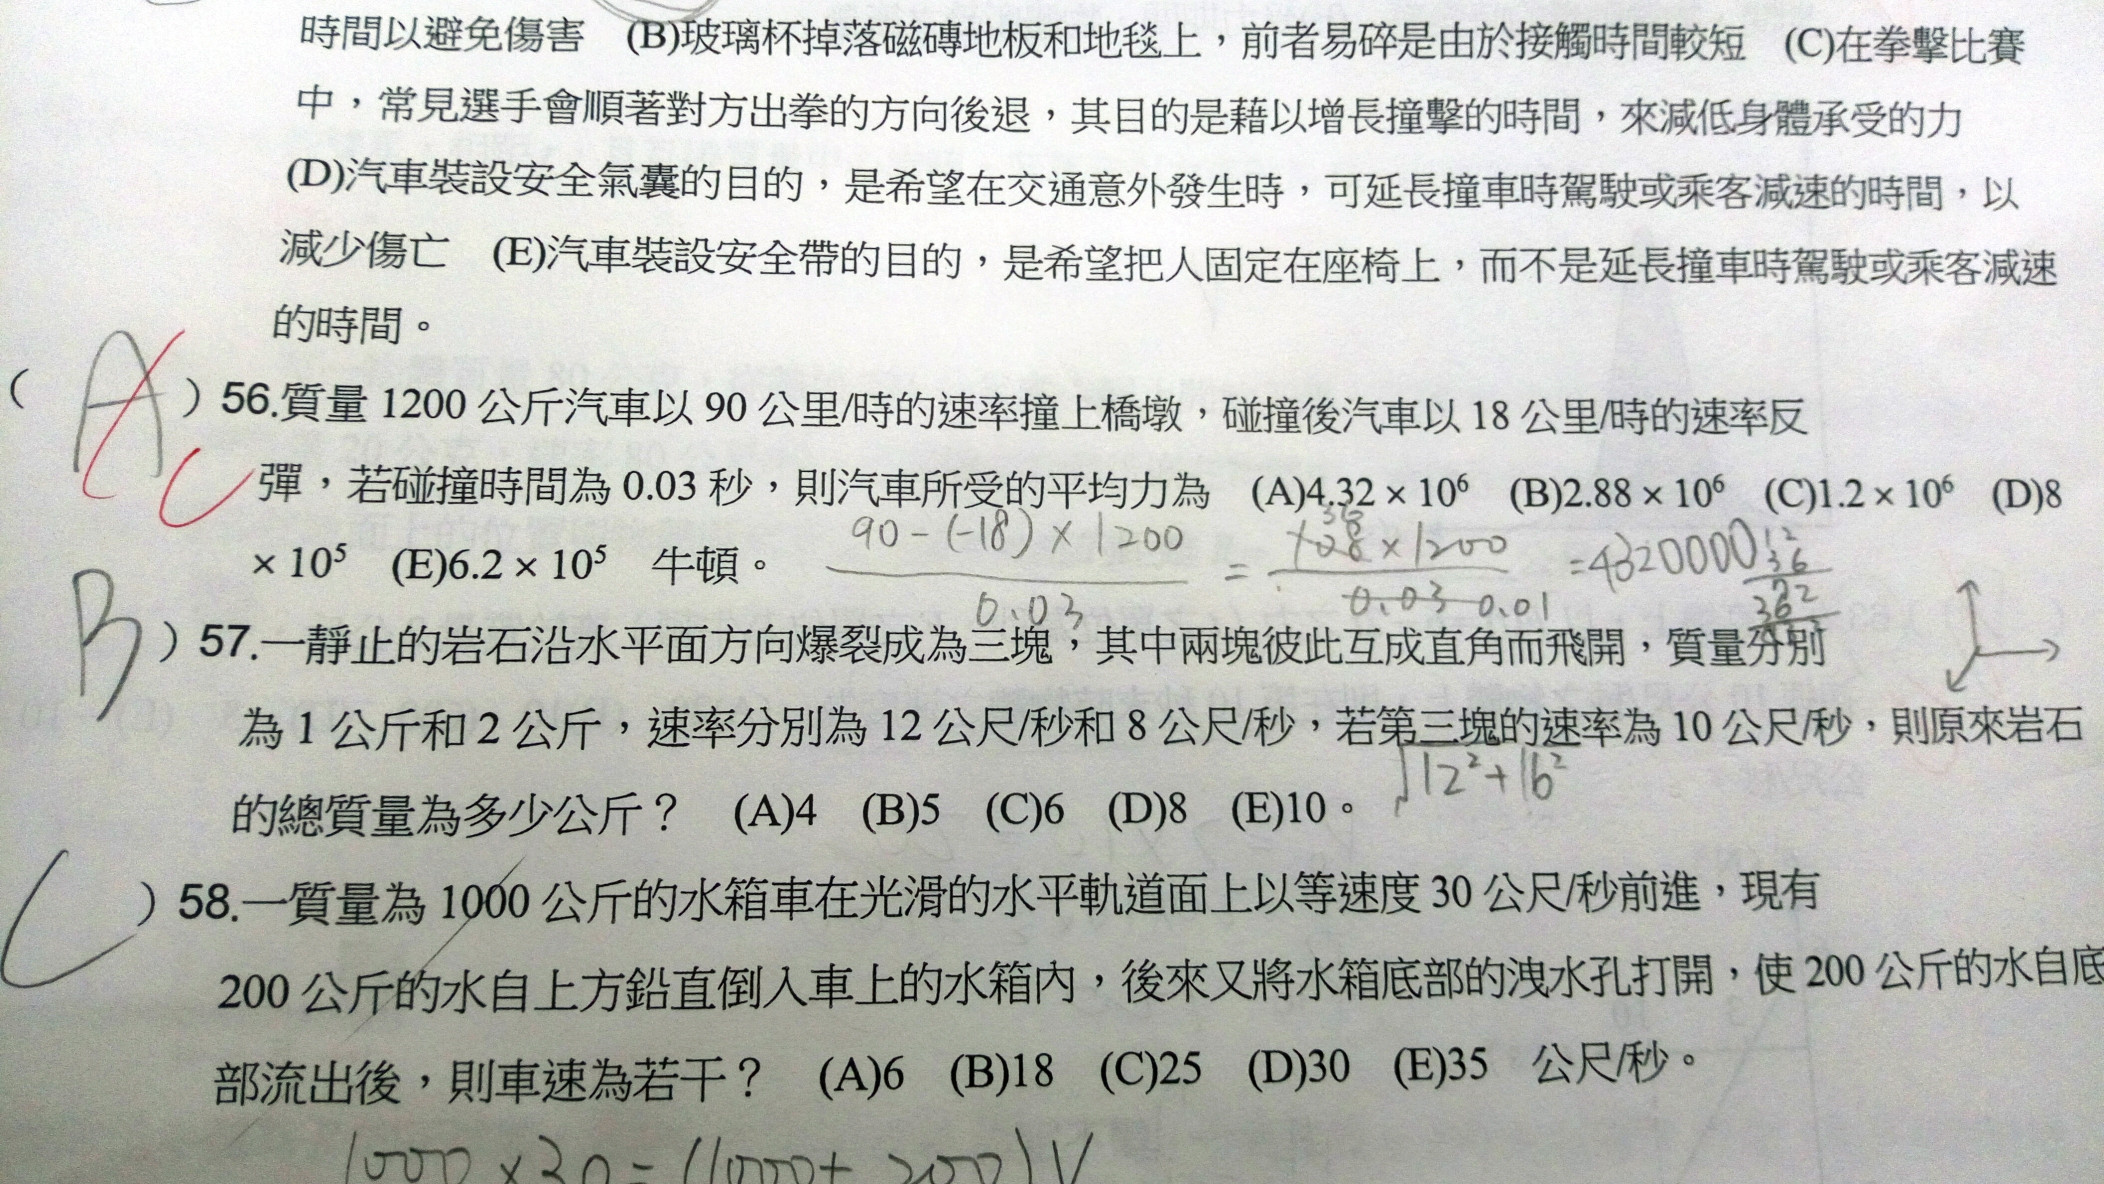 時間以避免傷害 (B)玻璃杯掉落磁磚地板和地毯上，前者易碎是由於接觸時間較短 (C)在拳擊比賽
中，常見選手會順著對方出拳的方向後退，其目的是藉以增長撞擊的時間，來減低身體承受的力
(D)汽車裝設安全氣囊的目的，是希望在交通意外發生時，可延長撞車時駕駛或乘客減速的時間，以
減少傷亡 (E)汽車裝設安全帶的目的，是希望把人固定在座椅上，而不是延長撞車時駕駛或乘客減速
的時間。
( A C ) 56.質量 1200 公斤汽車以 90 公里/時的速率撞上橋墩，碰撞後汽車以 18 公里/時的速率反
彈，若碰撞時間為 0.03 秒，則汽車所受的平均力為 (A)4.32 × 10⁶ (B)2.88 × 10⁶ (C)1.2 × 10⁶ (D)8
× 10⁵ (E)6.2 × 10⁵ 牛頓。
90-(-18) × 1200
0.03
= 36 108 × 1200
0.03 0.01
= 4320000
12
36
72
36
B ) 57.一靜止的岩石沿水平面方向爆裂成為三塊，其中兩塊彼此互成直角而飛開，質量分別
為 1 公斤和 2 公斤，速率分別為 12 公尺/秒和 8 公尺/秒，若第三塊的速率為 10 公尺/秒，則原來岩石
√12²+16²
的總質量為多少公斤？ (A)4 (B)5 (C)6 (D)8 (E)10。
C ) 58.一質量為 1000 公斤的水箱車在光滑的水平軌道面上以等速度 30 公尺/秒前進，現有
200 公斤的水自上方鉛直倒入車上的水箱內，後來又將水箱底部的洩水孔打開，使 200 公斤的水自底
部流出後，則車速為若干？ (A)6 (B)18 (C)25 (D)30 (E)35 公尺/秒。
1000 × 30 = (1000+ 200) V